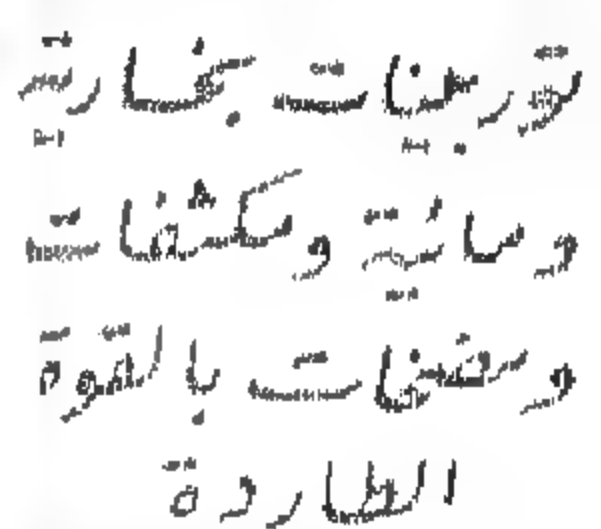 توربينات بخارية
ومائية ومكثفات
ومضخات بالقوة
الطاردة